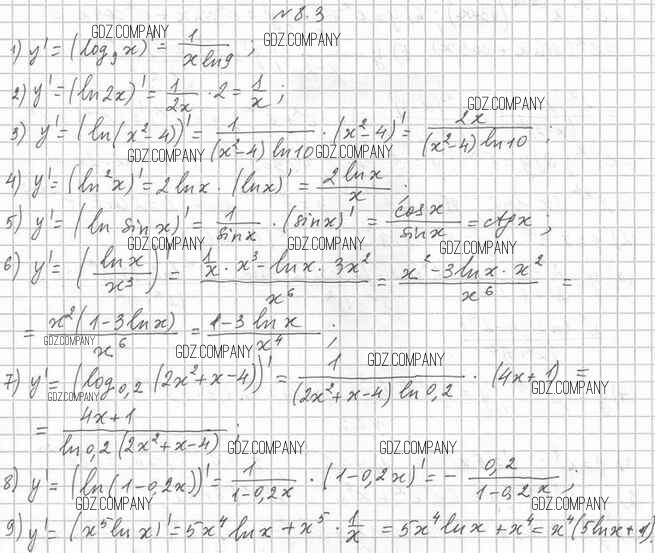 № 8.3
GDZ.COMPANY GDZ.COMPANY
1) y' = (log₉x)' = 1/(x ln9) ;
2) y' = (ln2x)' = 1/(2x) · 2 = 1/x ;
GDZ.COMPANY
3) y' = (ln(x²-4))' = 1/((x²-4) ln10) · (x²-4)' = 2x/((x²-4) ln10) ;
GDZ.COMPANY GDZ.COMPANY
4) y' = (ln²x)' = 2lnx · (lnx)' = 2lnx/x ;
5) y' = (ln sinx)' = 1/sinx · (sinx)' = cosx/sinx = ctgx ;
GDZ.COMPANY GDZ.COMPANY
6) y' = (lnx/x³)' = (1/x · x³ - lnx · 3x²)/x⁶ = (x² - 3lnx · x²)/x⁶ =
= x²(1-3lnx)/x⁶ = (1-3lnx)/x⁴ ;
GDZ.COMPANY GDZ.COMPANY GDZ.COMPANY
7) y' = (log₀,₂(2x²+x-4))' = 1/((2x²+x-4) ln0,2) · (4x+1) =
GDZ.COMPANY GDZ.COMPANY
= (4x+1)/(ln0,2(2x²+x-4)) ;
GDZ.COMPANY GDZ.COMPANY
8) y' = (ln(1-0,2x))' = 1/(1-0,2x) · (1-0,2x)' = - 0,2/(1-0,2x) ;
GDZ.COMPANY GDZ.COMPANY
9) y' = (x⁵lnx)' = 5x⁴lnx + x⁵ · 1/x = 5x⁴lnx + x⁴ = x⁴(5lnx+1)